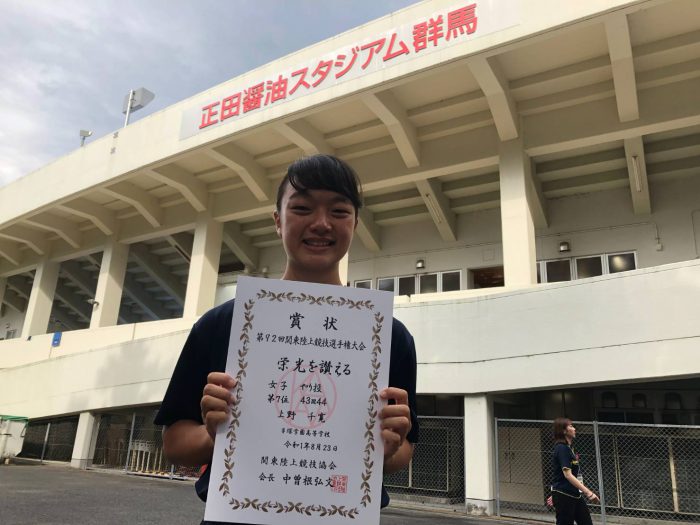 正田醤油スタジアム群馬
賞状
第92回関東陸上競技選手権大会
栄光を讃える
女子 やり投
第7位 43m44
上野 千寛
草塚学園高等学校
令和1年8月23日
関東陸上競技協会
会長 中曽根弘文